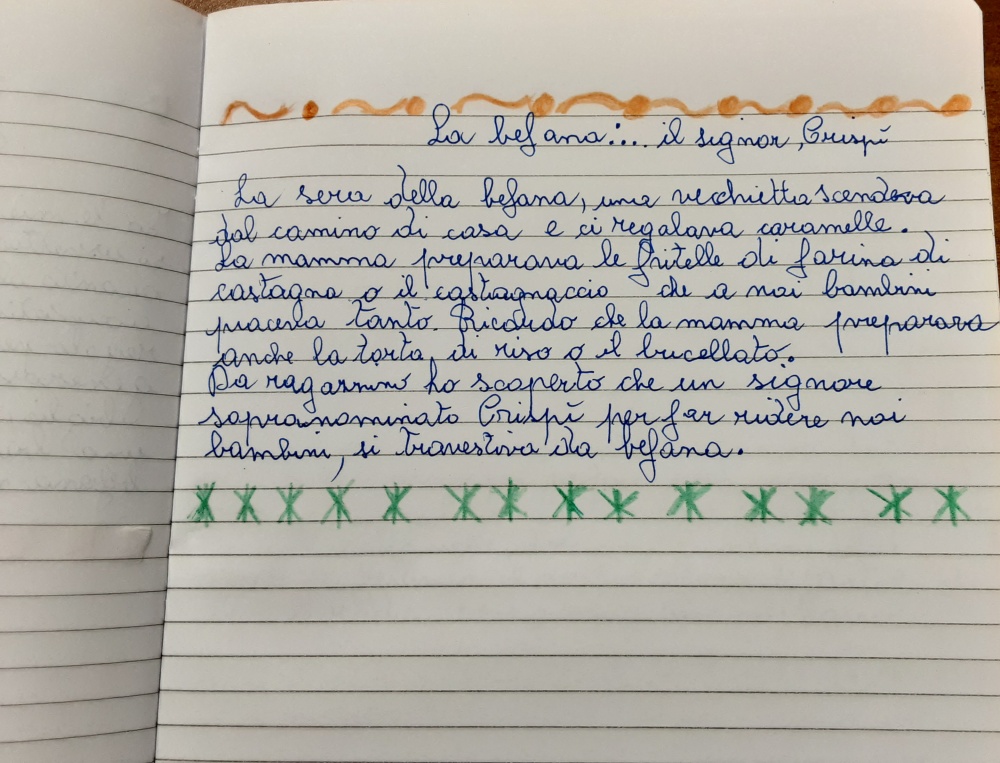 La befana:... il signor, Crispì
La sera della befana, una vecchietta scendeva
dal camino di casa e ci regalava caramelle.
La mamma preparava le fritelle di farina di
castagna o il castagnaccio che a noi bambini
piaceva tanto. Ricordo che la mamma preparava
anche la torta di riso o il bucellato.
Da ragazzino ho scoperto che un signore
sopranominato Crispì per far ridere noi
bambini, si travestiva da befana.